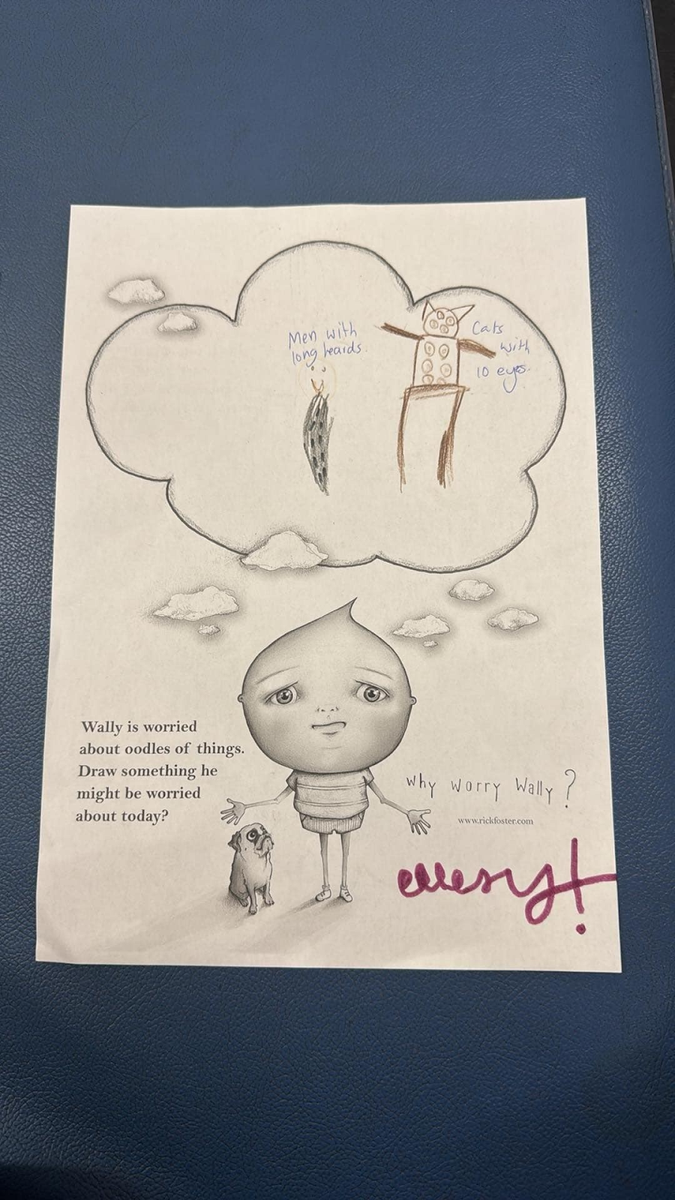 Men with
long beards.
Cats
with
10 eyes.
Wally is worried
about oodles of things.
Draw something he
might be worried
about today?
why worry Wally?
www.rickfoster.com